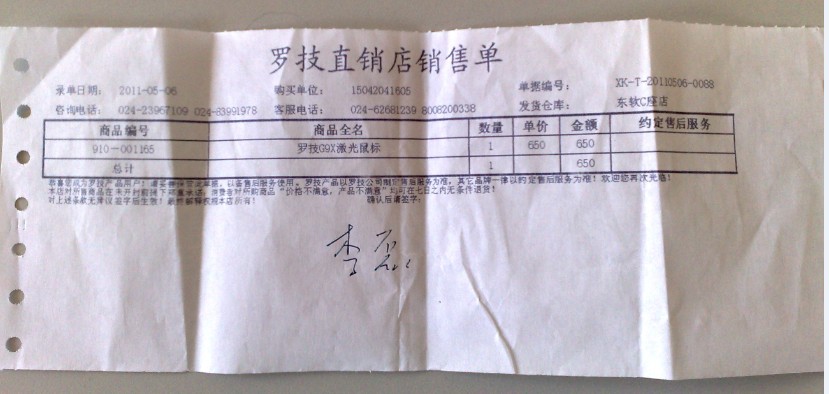 罗技直销店销售单
录单日期： 2011-05-06 购买单位： 15042041605 单据编号： XK-T-20110506-0088
咨询电话： 024-23967109 024-83991978 客服电话： 024-62681239 8008200338 发货仓库： 东软C座店
商品编号 商品全名 数量 单价 金额 约定售后服务
910-001165 罗技G9X激光鼠标 1 650 650
总计 1 650
恭喜您成为罗技产品用户！请妥善保管此单据，以备售后服务使用。罗技产品以罗技公司制定售后服务为准，其它品牌一律以约定售后服务为准！欢迎您再次光临！
本店对所售商品在未开封前提下郑重承诺，消费者对所购商品“价格不满意，产品不满意”均可在七日之内无条件退货！
对上述条款无异议签字后生意！最终解释权规本店所有！ 确认后请签字：
李